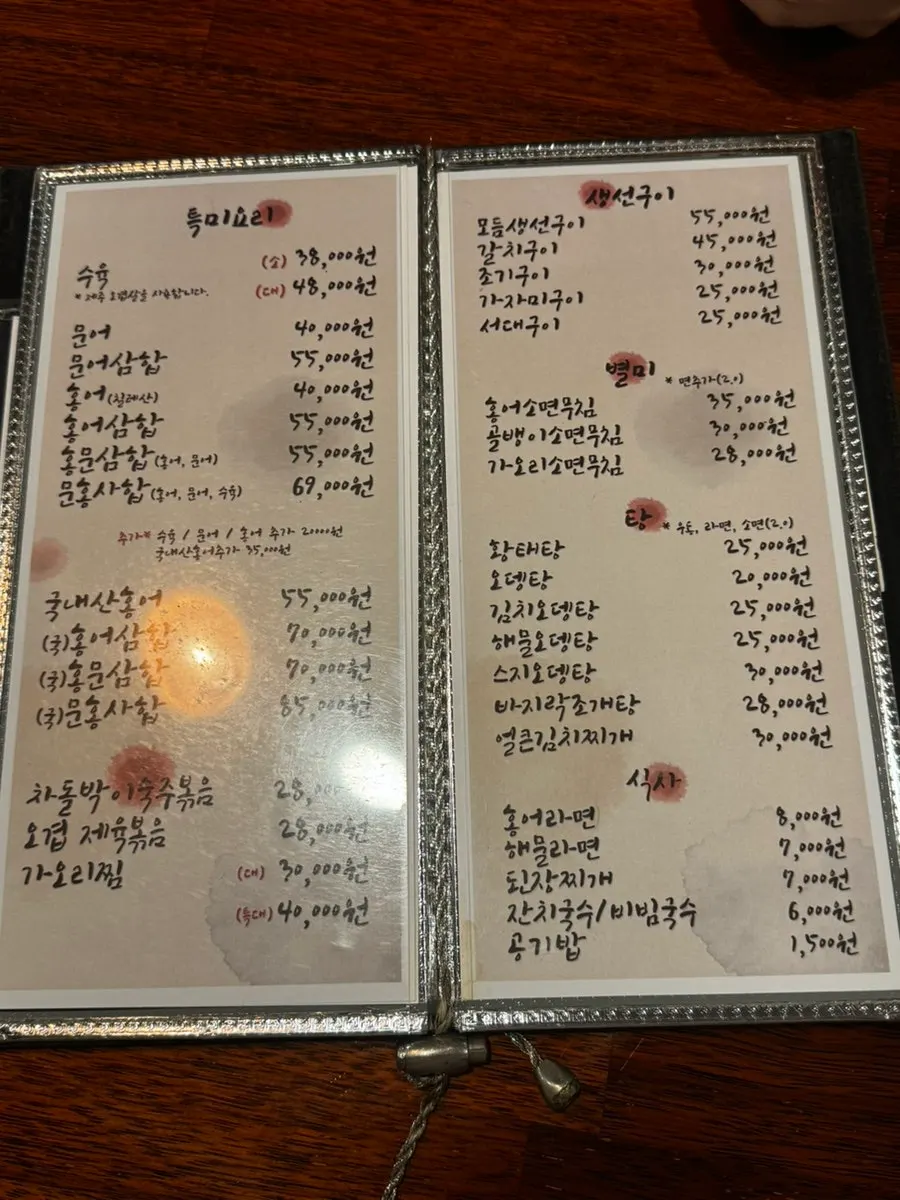 특미요리
수육 (소) 38,000원
* 제주 오겹살을 사용합니다. (대) 48,000원
문어 40,000원
문어삼합 55,000원
홍어(칠레산) 40,000원
홍어삼합 55,000원
홍문삼합(홍어, 문어) 55,000원
문홍사합(홍어, 문어, 수육) 69,000원
추가* 수육 / 문어 / 홍어 추가 20000원
국내산홍어추가 35,000원
국내산홍어 55,000원
(국)홍어삼합 70,000원
(국)홍문삼합 70,000원
(국)문홍사합 85,000원
차돌박이숙주볶음 28,
오겹 제육볶음 28,000원
가오리찜 (대) 30,000원
(특대) 40,000원
생선구이
모듬생선구이 55,000원
갈치구이 45,000원
조기구이 30,000원
가자미구이 25,000원
서대구이 25,000원
별미 * 면추가(2.0)
홍어소면무침 35,000원
골뱅이소면무침 30,000원
가오리소면무침 28,000원
탕 * 우동, 라면, 소면(2.0)
황태탕 25,000원
오뎅탕 20,000원
김치오뎅탕 25,000원
해물오뎅탕 25,000원
스지오뎅탕 30,000원
바지락조개탕 28,000원
얼큰김치찌개 30,000원
식사
홍어라면 8,000원
해물라면 7,000원
된장찌개 7,000원
잔치국수/비빔국수 6,000원
공기밥 1,500원